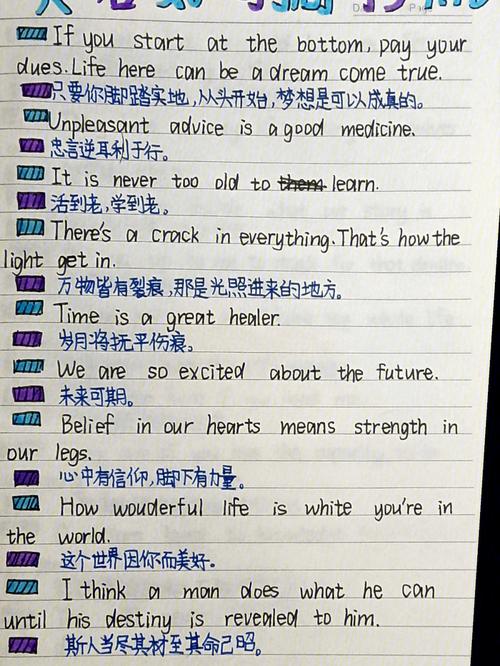 If you start at the bottom, pay your
dues. Life here can be a dream come true.
只要你脚踏实地，从头开始，梦想是可以成真的。
Unpleasant advice is a good medicine.
忠言逆耳利于行。
It is never too old to them learn.
活到老，学到老。
There's a crack in everything. That's how the
light get in.
万物皆有裂痕，那是光照进来的地方。
Time is a great healer.
岁月将抚平伤痕。
We are so excited about the future.
未来可期。
Belief in our hearts means strength in
our legs.
心中有信仰，脚下有力量。
How wouderful life is white you're in
the world.
这个世界因你而美好。
I think a man does what he can
until his destiny is revealed to him.
斯人当尽其材至其命己昭。